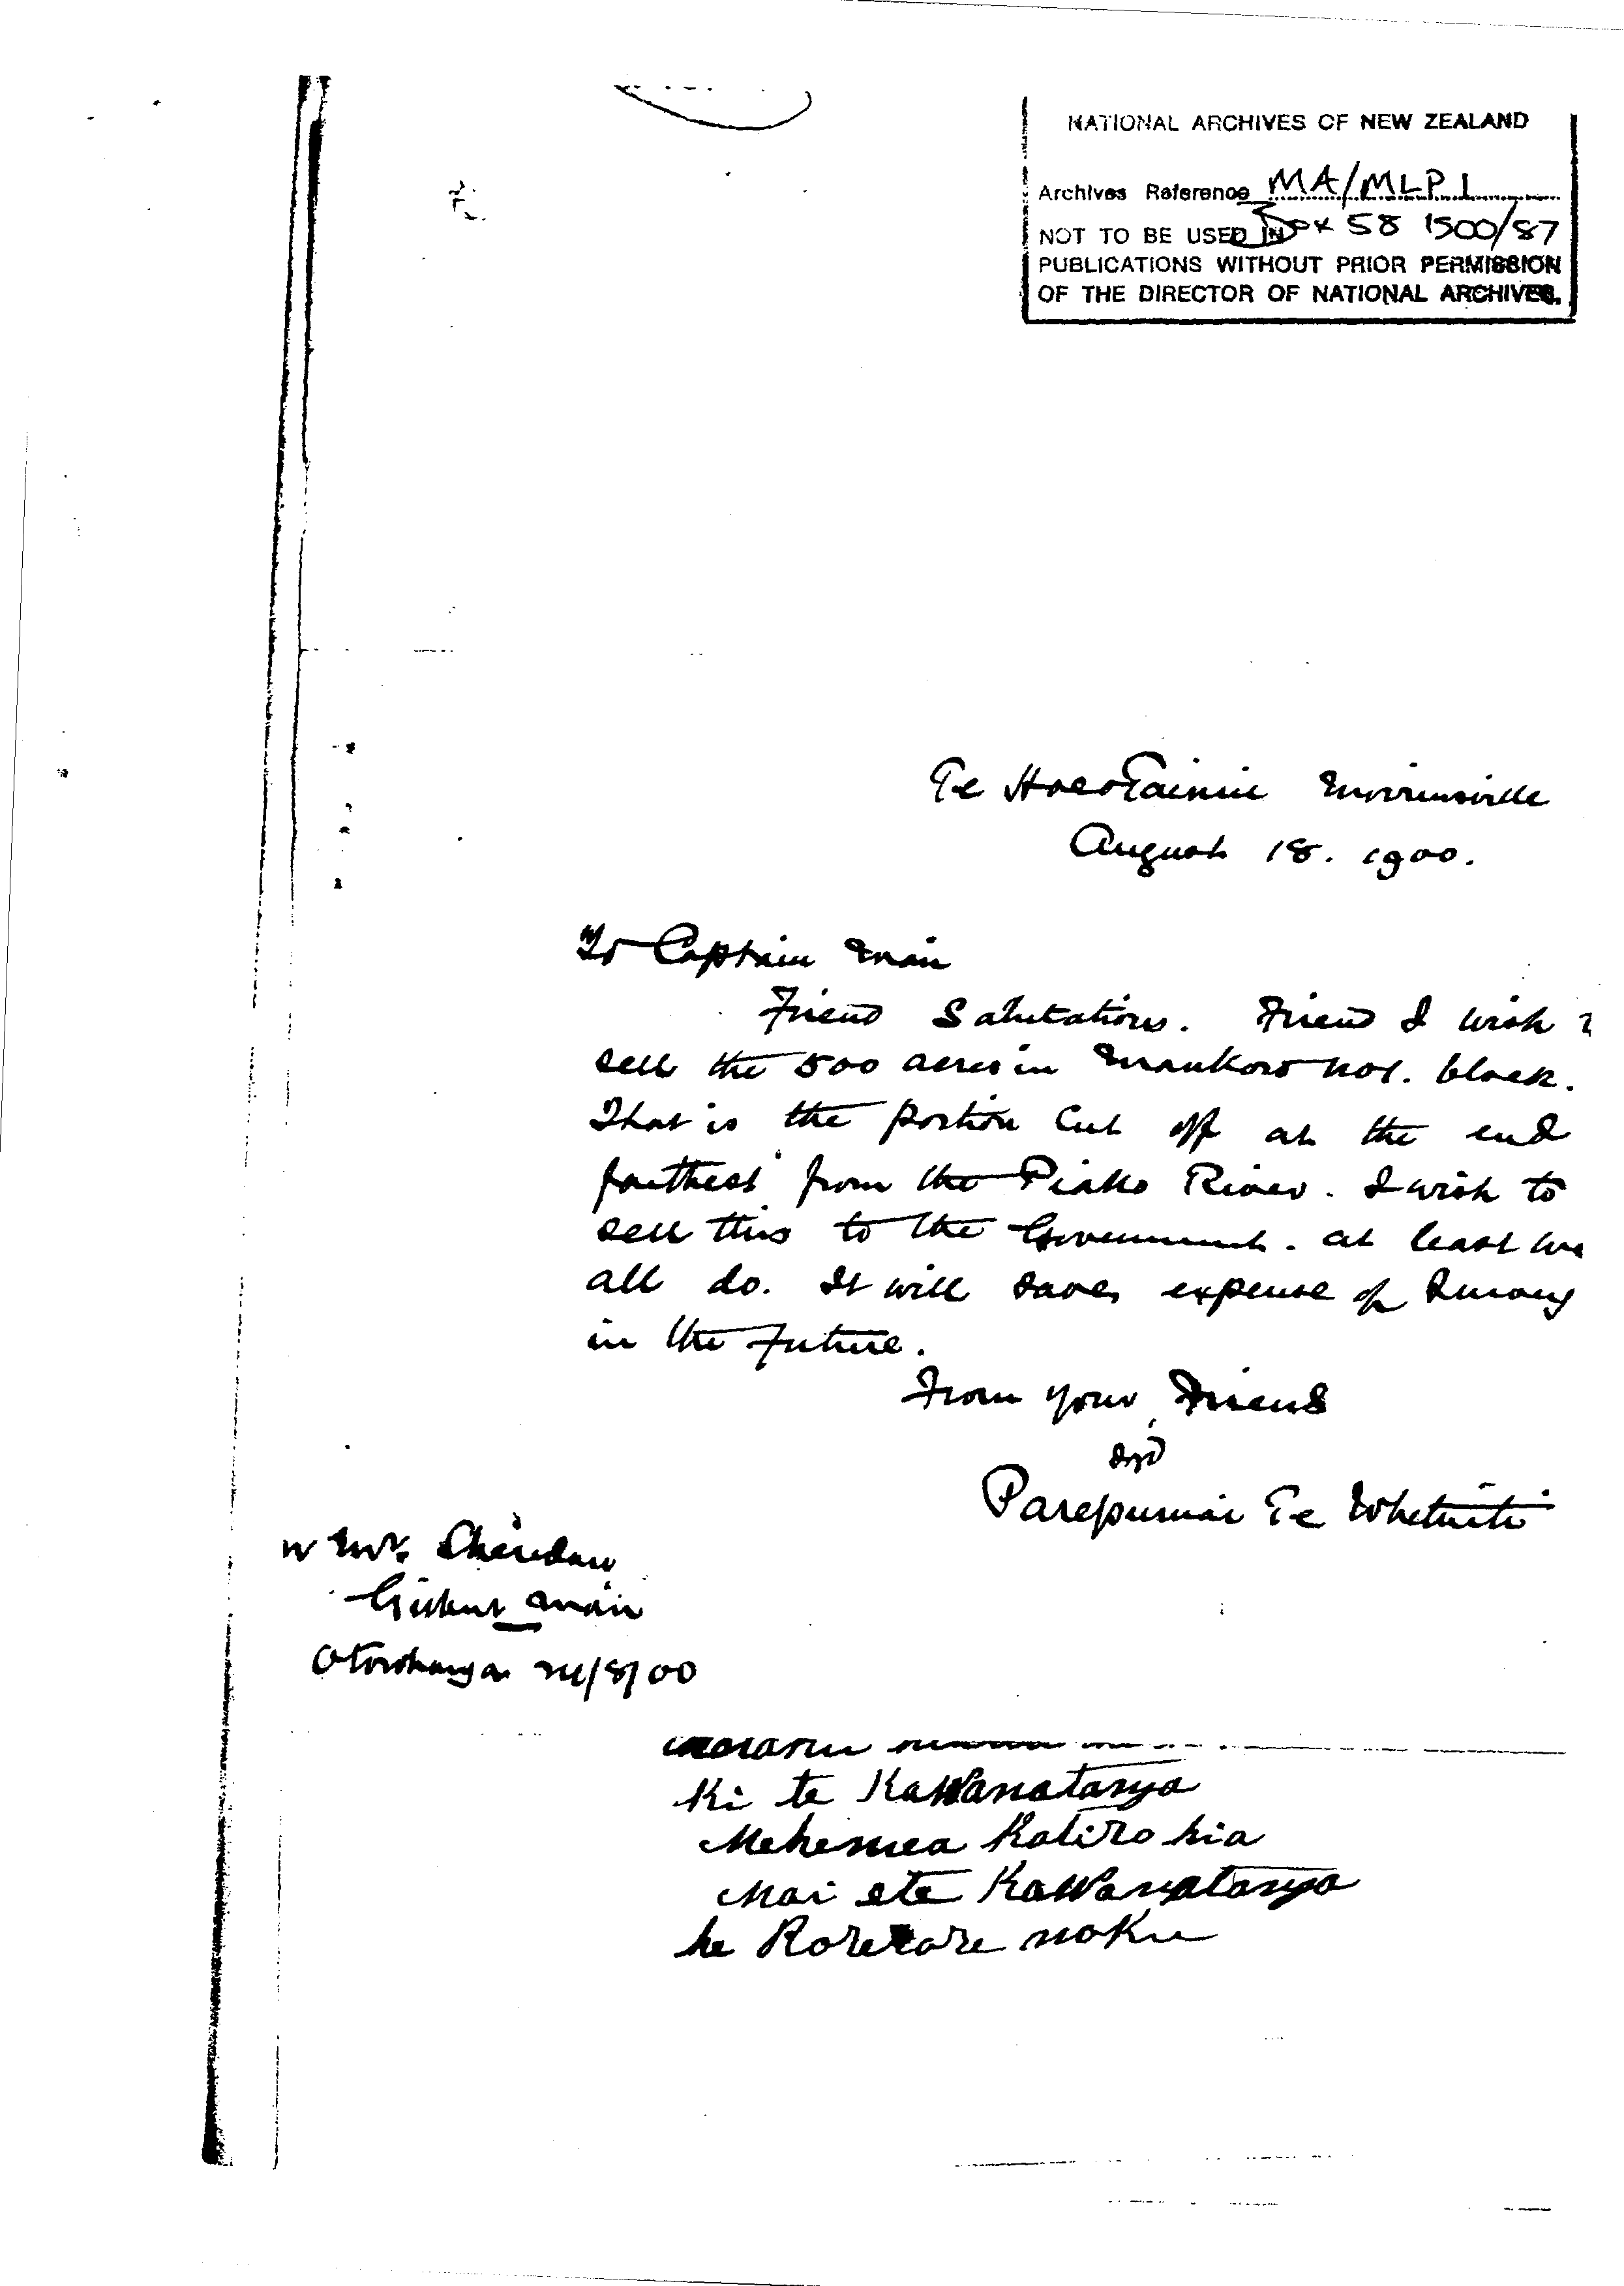 NATIONAL ARCHIVES OF NEW ZEALAND
Archives Reference MA/MLP 1
NOT TO BE USED IN Box 58 1500/87
PUBLICATIONS WITHOUT PRIOR PERMISSION
OF THE DIRECTOR OF NATIONAL ARCHIVES.
Te Hoe o Tainui Morrinsville
August 18. 1900.
To Captain Mair
Friend Salutations. Friend I wish
sell the 500 acres in Maukoro No1. block.
That is the portion cut off at the end
farthest from the Piako River. I wish to
sell this to the Government. at least we
all do. It will save expense of Survey
in the future.
From your Friend
sgd
Parepumai Te Whetuiti
Mr. Sheridan
Gilbert Mair
Otorohanga /8/00
Ki te Kawanatanga
Mehemea Katiro hia
Mai ete Kawanatanga
he Rorerore noku